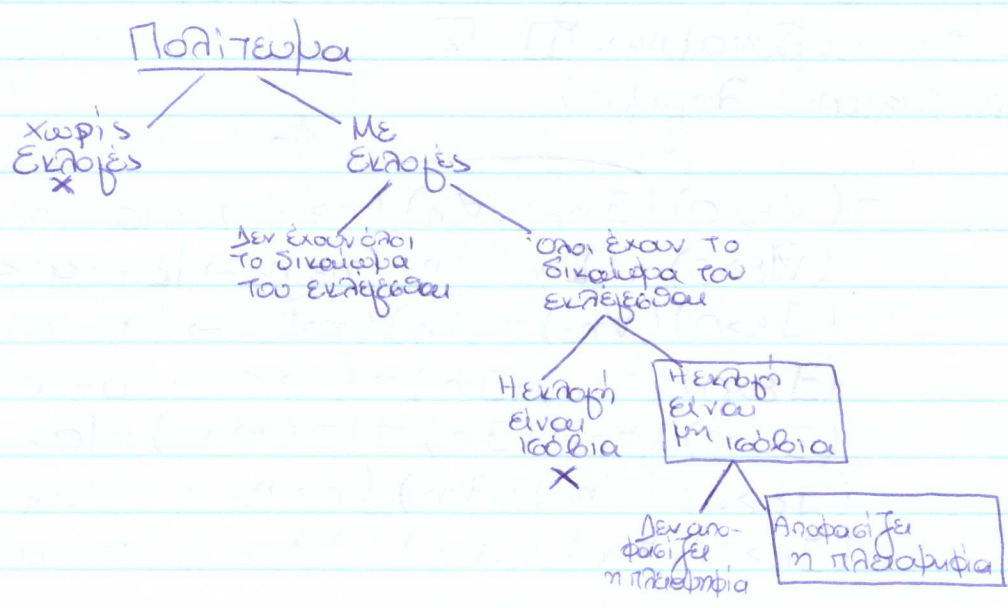 Πολίτευμα
Χωρίς
Εκλογές
x
Με
Εκλογές
Δεν έχουν όλοι
το δικαίωμα
του εκλέγεσθαι
Όλοι έχουν το
δικαίωμα του
εκλέγεσθαι
Η εκλογή
είναι
ισόβια
x
Η εκλογή
είναι
μη ισόβια
Δεν απο-
φασίζει
η πλειοψηφία
Αποφασίζει
η πλειοψηφία